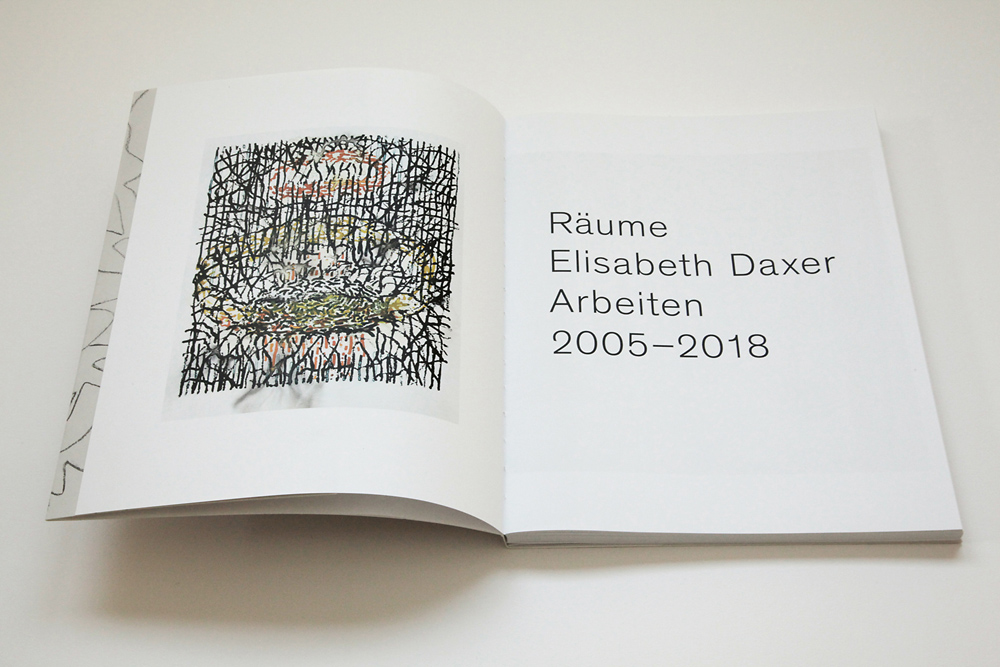 Räume
Elisabeth Daxer
Arbeiten
2005–2018